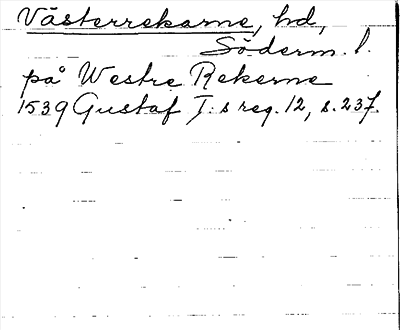 Västerrekarne, hd,
Söderm. l.
på Westre Rekerne
1539 Gustaf I:s reg. 12, s. 237.